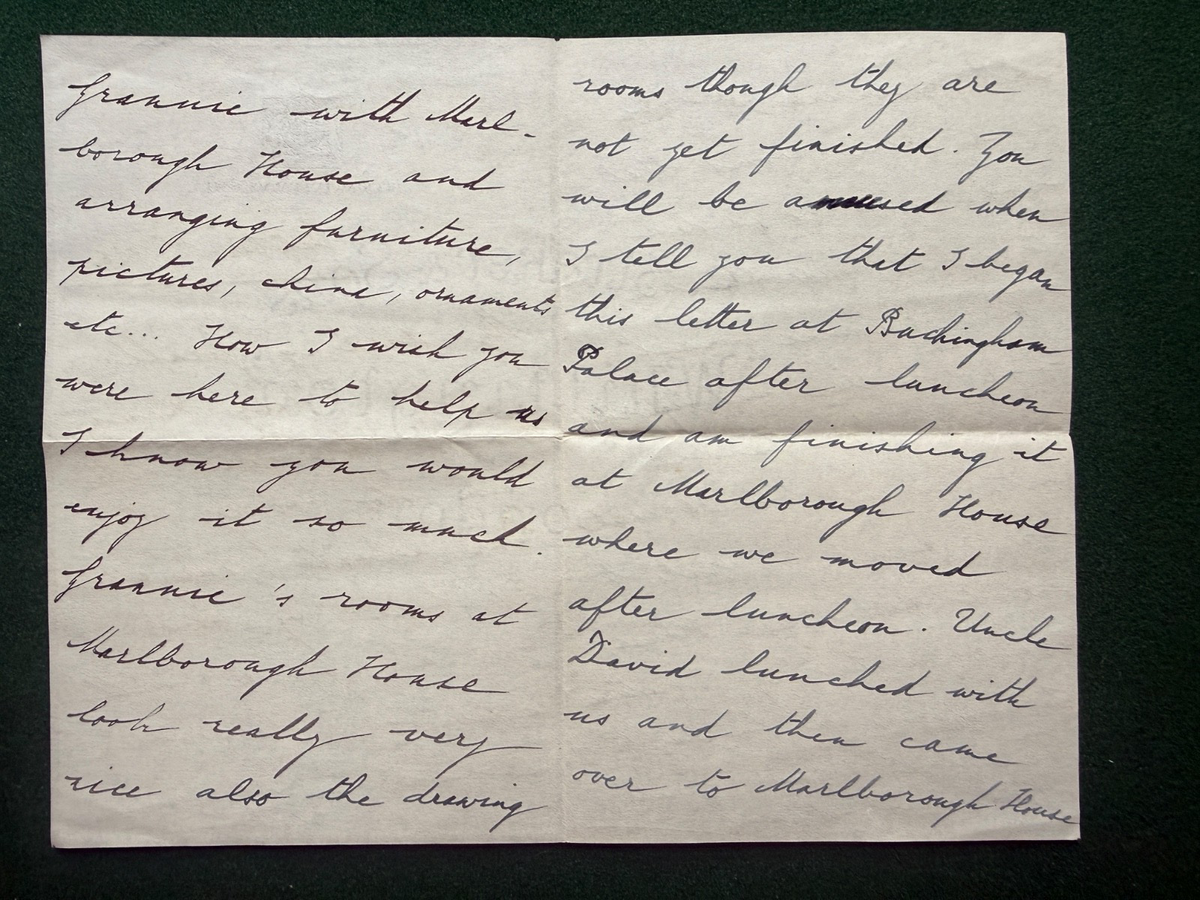 Grannie with Marl-
borough House and
arranging furniture,
pictures, china, ornaments
etc... How I wish you
were here to help us
I know you would
enjoy it so much.
Grannie's rooms at
Marlborough House
look really very
nice also the drawing
rooms though they are
not yet finished. You
will be amused when
I tell you that I began
this letter at Buckingham
Palace after luncheon
and am finishing it
at Marlborough House
where we moved
after luncheon. Uncle
David lunched with
us and then came
over to Marlborough House